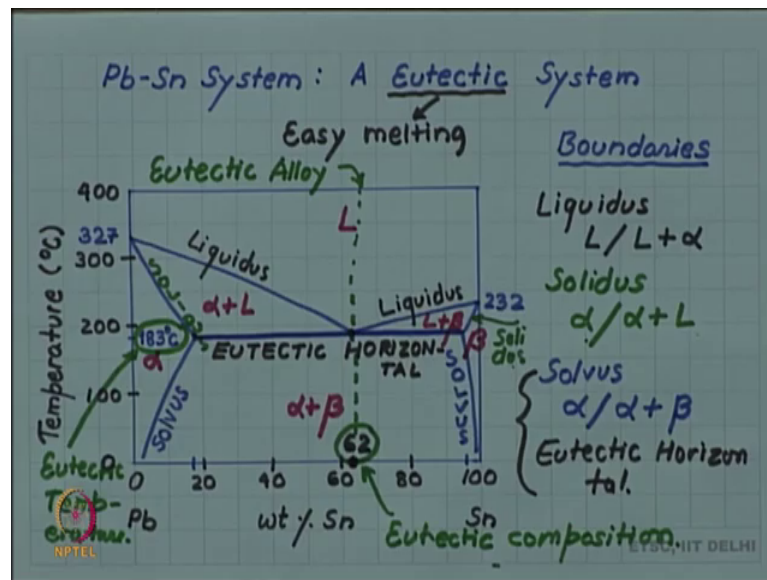 Pb-Sn System: A Eutectic System
Easy melting
Eutectic Alloy
Boundaries
Liquidus
L/L+α
Solidus
α/α+L
Solvus
α/α+β
Eutectic Horizon
tal.
Temperature (°C)
400
327
300
200
100
0
183°C
α
Solidus
Liquidus
α+L
L
Liquidus
232
L+β
β
Soli
dus
EUTECTIC HORIZON-
TAL
Solvus
α+β
Solvus
62
0 20 40 60 80 100
Pb wt % Sn Sn
Eutectic
Temp-
eratur.
Eutectic composition.
NPTEL
ETSC, IIT DELHI